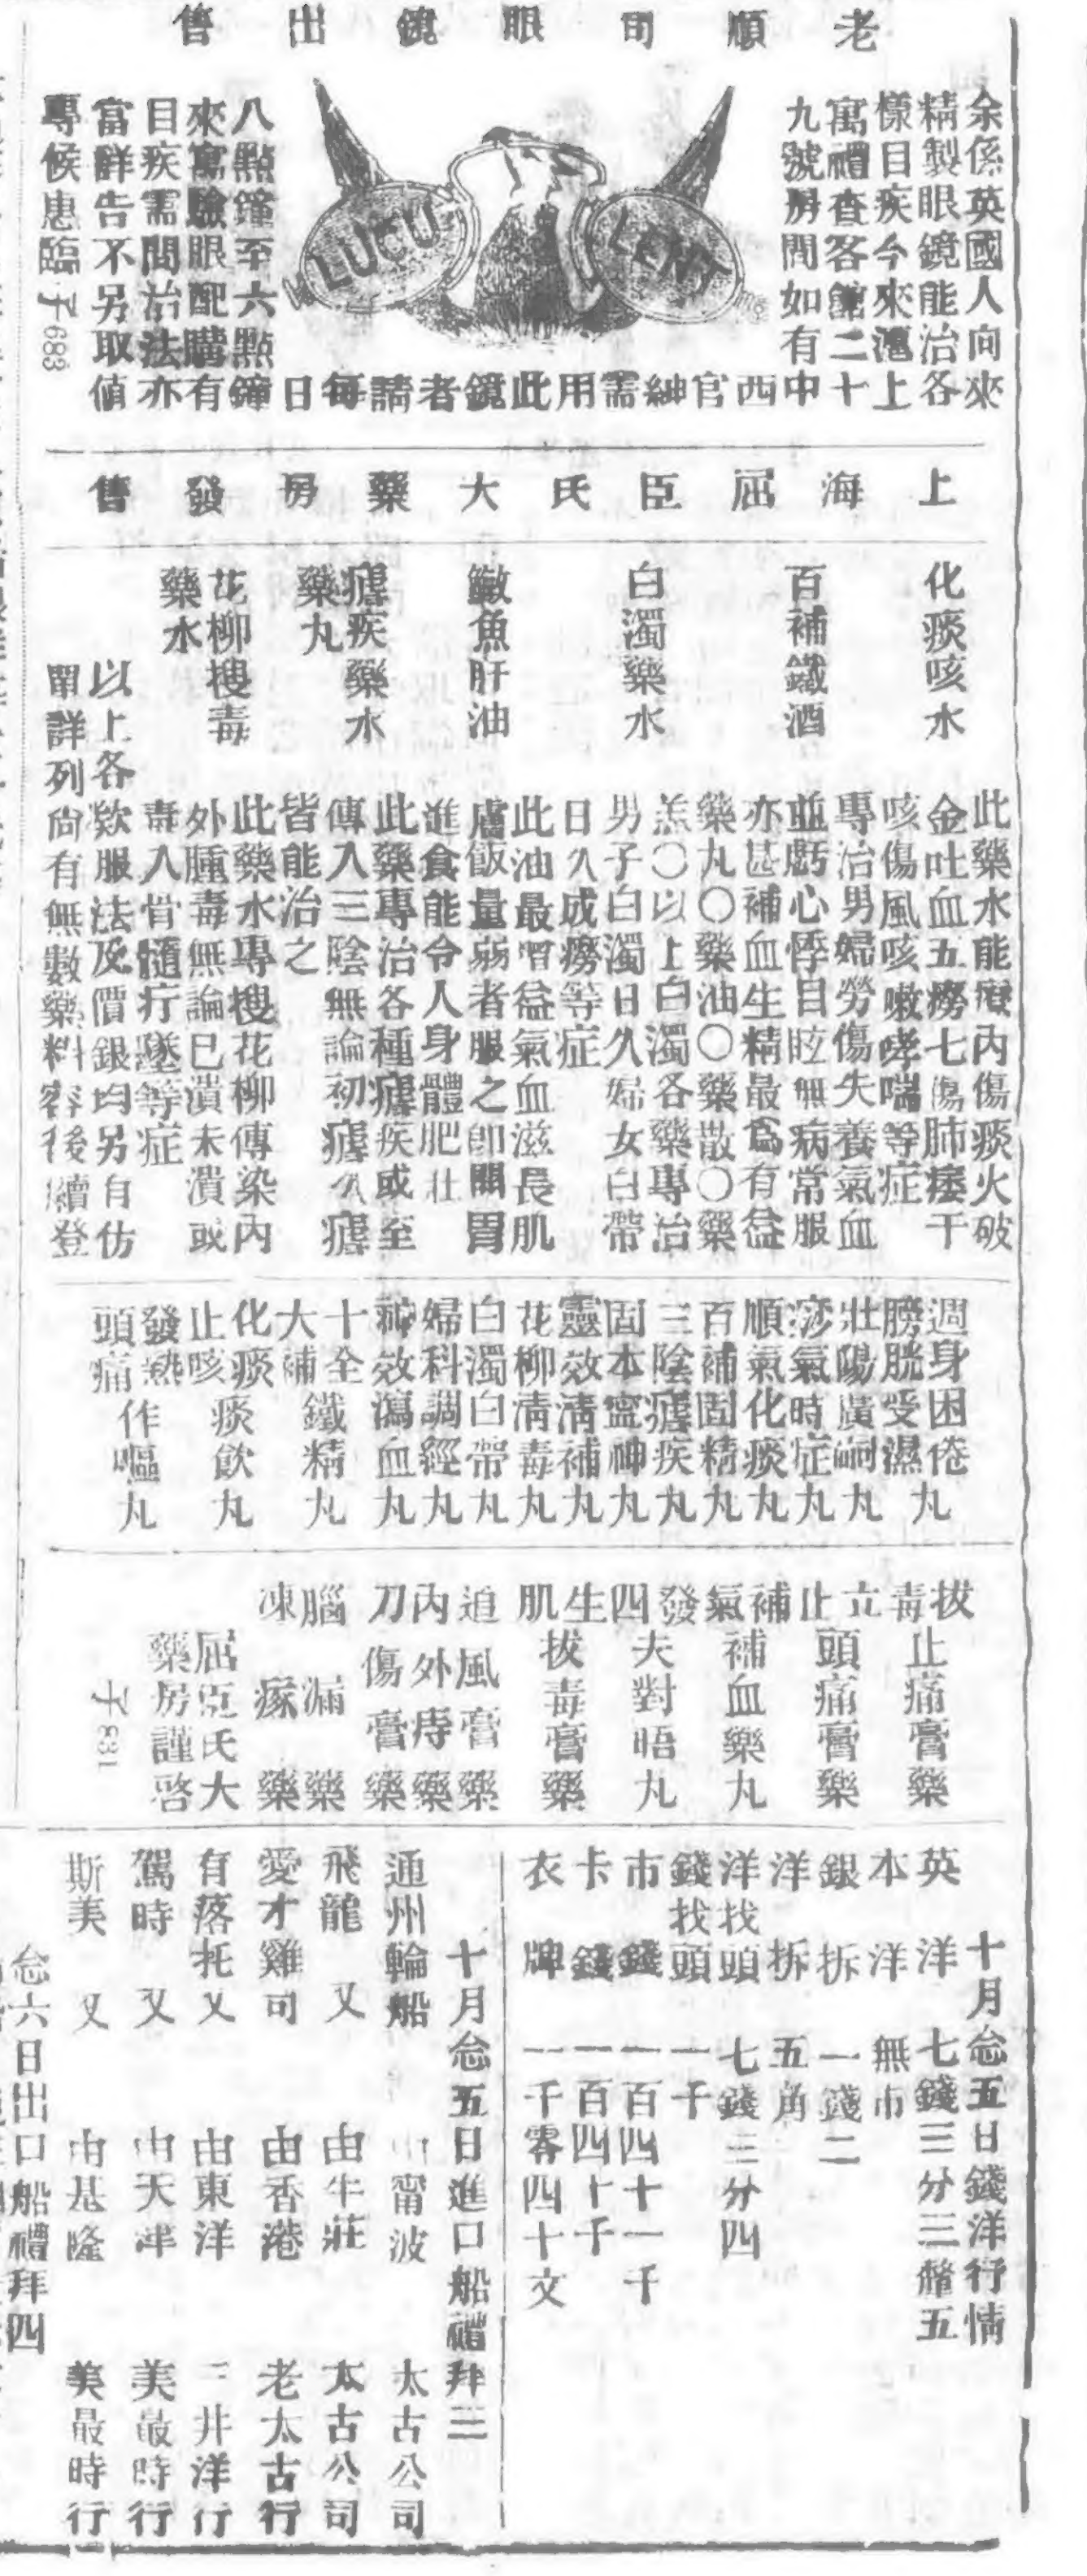 老順司眼鏡出售
余係英國人向來
精製眼鏡能治各
樣目疾今來滬上
寓禮查客館二十
九號房間如有中
西官紳需用此鏡者請每日
八點鐘至六點鐘
來寓驗眼配購有
目疾需問治法亦
當詳告不另取値
專候惠臨 子683
LUCU
LENT
上海屈臣氏大藥房發售
化痰咳水
此藥水能療內傷痰火破
金吐血五癆七傷肺痿干
咳傷風咳嗽哮喘等症
百補鐵酒
專治男婦勞傷失養氣血
並虧心悸目眩無病常服
亦甚補血生精最爲有益
白濁藥水
藥丸〇藥油〇藥散〇藥
羔〇以上白濁各藥專治
男子白濁日久婦女白帶
日久成癆等症
鰵魚肝油
此油最增益氣血滋長肌
膚飯量弱者服之卽開胃
進食能令人身體肥壯
瘧疾藥水
藥丸
此藥專治各種瘧疾或至
傳入三陰無論初瘧久瘧
皆能治之
花柳搜毒
藥水
此藥水專搜花柳傳染內
外腫毒無論已潰未潰或
毒入骨髓疔墜等症
以上各欵服法及價銀均另有仿
單詳列尙有無數藥料容後續登
週身困倦丸
膀胱受濕
壯陽廣嗣丸
痧氣時症丸
順氣化痰丸
百補固精丸
三陰瘧疾丸
固本寧神丸
靈效淸補丸
花柳淸毒丸
白濁白帶丸
婦科調經丸
神效瀉血丸
十全大補鐵精丸
化痰止咳痰飮丸
發熱頭痛作嘔丸
拔毒止痛膏藥
立止頭痛膏藥
補氣補血藥丸
發四夫對晤丸
生肌拔毒膏藥
追風膏藥
內外痔藥
刀傷膏藥
腦漏藥
凍瘃藥
屈臣氏大
藥房謹啓
子831
十月念五日錢洋行情
英洋 七錢三分三釐五
本洋 無市
銀拆 一錢二
洋拆 五角
洋找頭 七錢三分四
錢找頭 一千
市錢 一百四十一千
卡錢 一百四十千
衣牌 一千零四十文
十月念五日進口船禮拜三
通州輪船 由甯波 太古公司
飛龍又 由牛莊 太古公司
愛才雞司 由香港 老太古行
有落托又 由東洋 三井洋行
駕時又 由天津 美最時行
斯美又 由基隆 美最時行
念六日出口船禮拜四